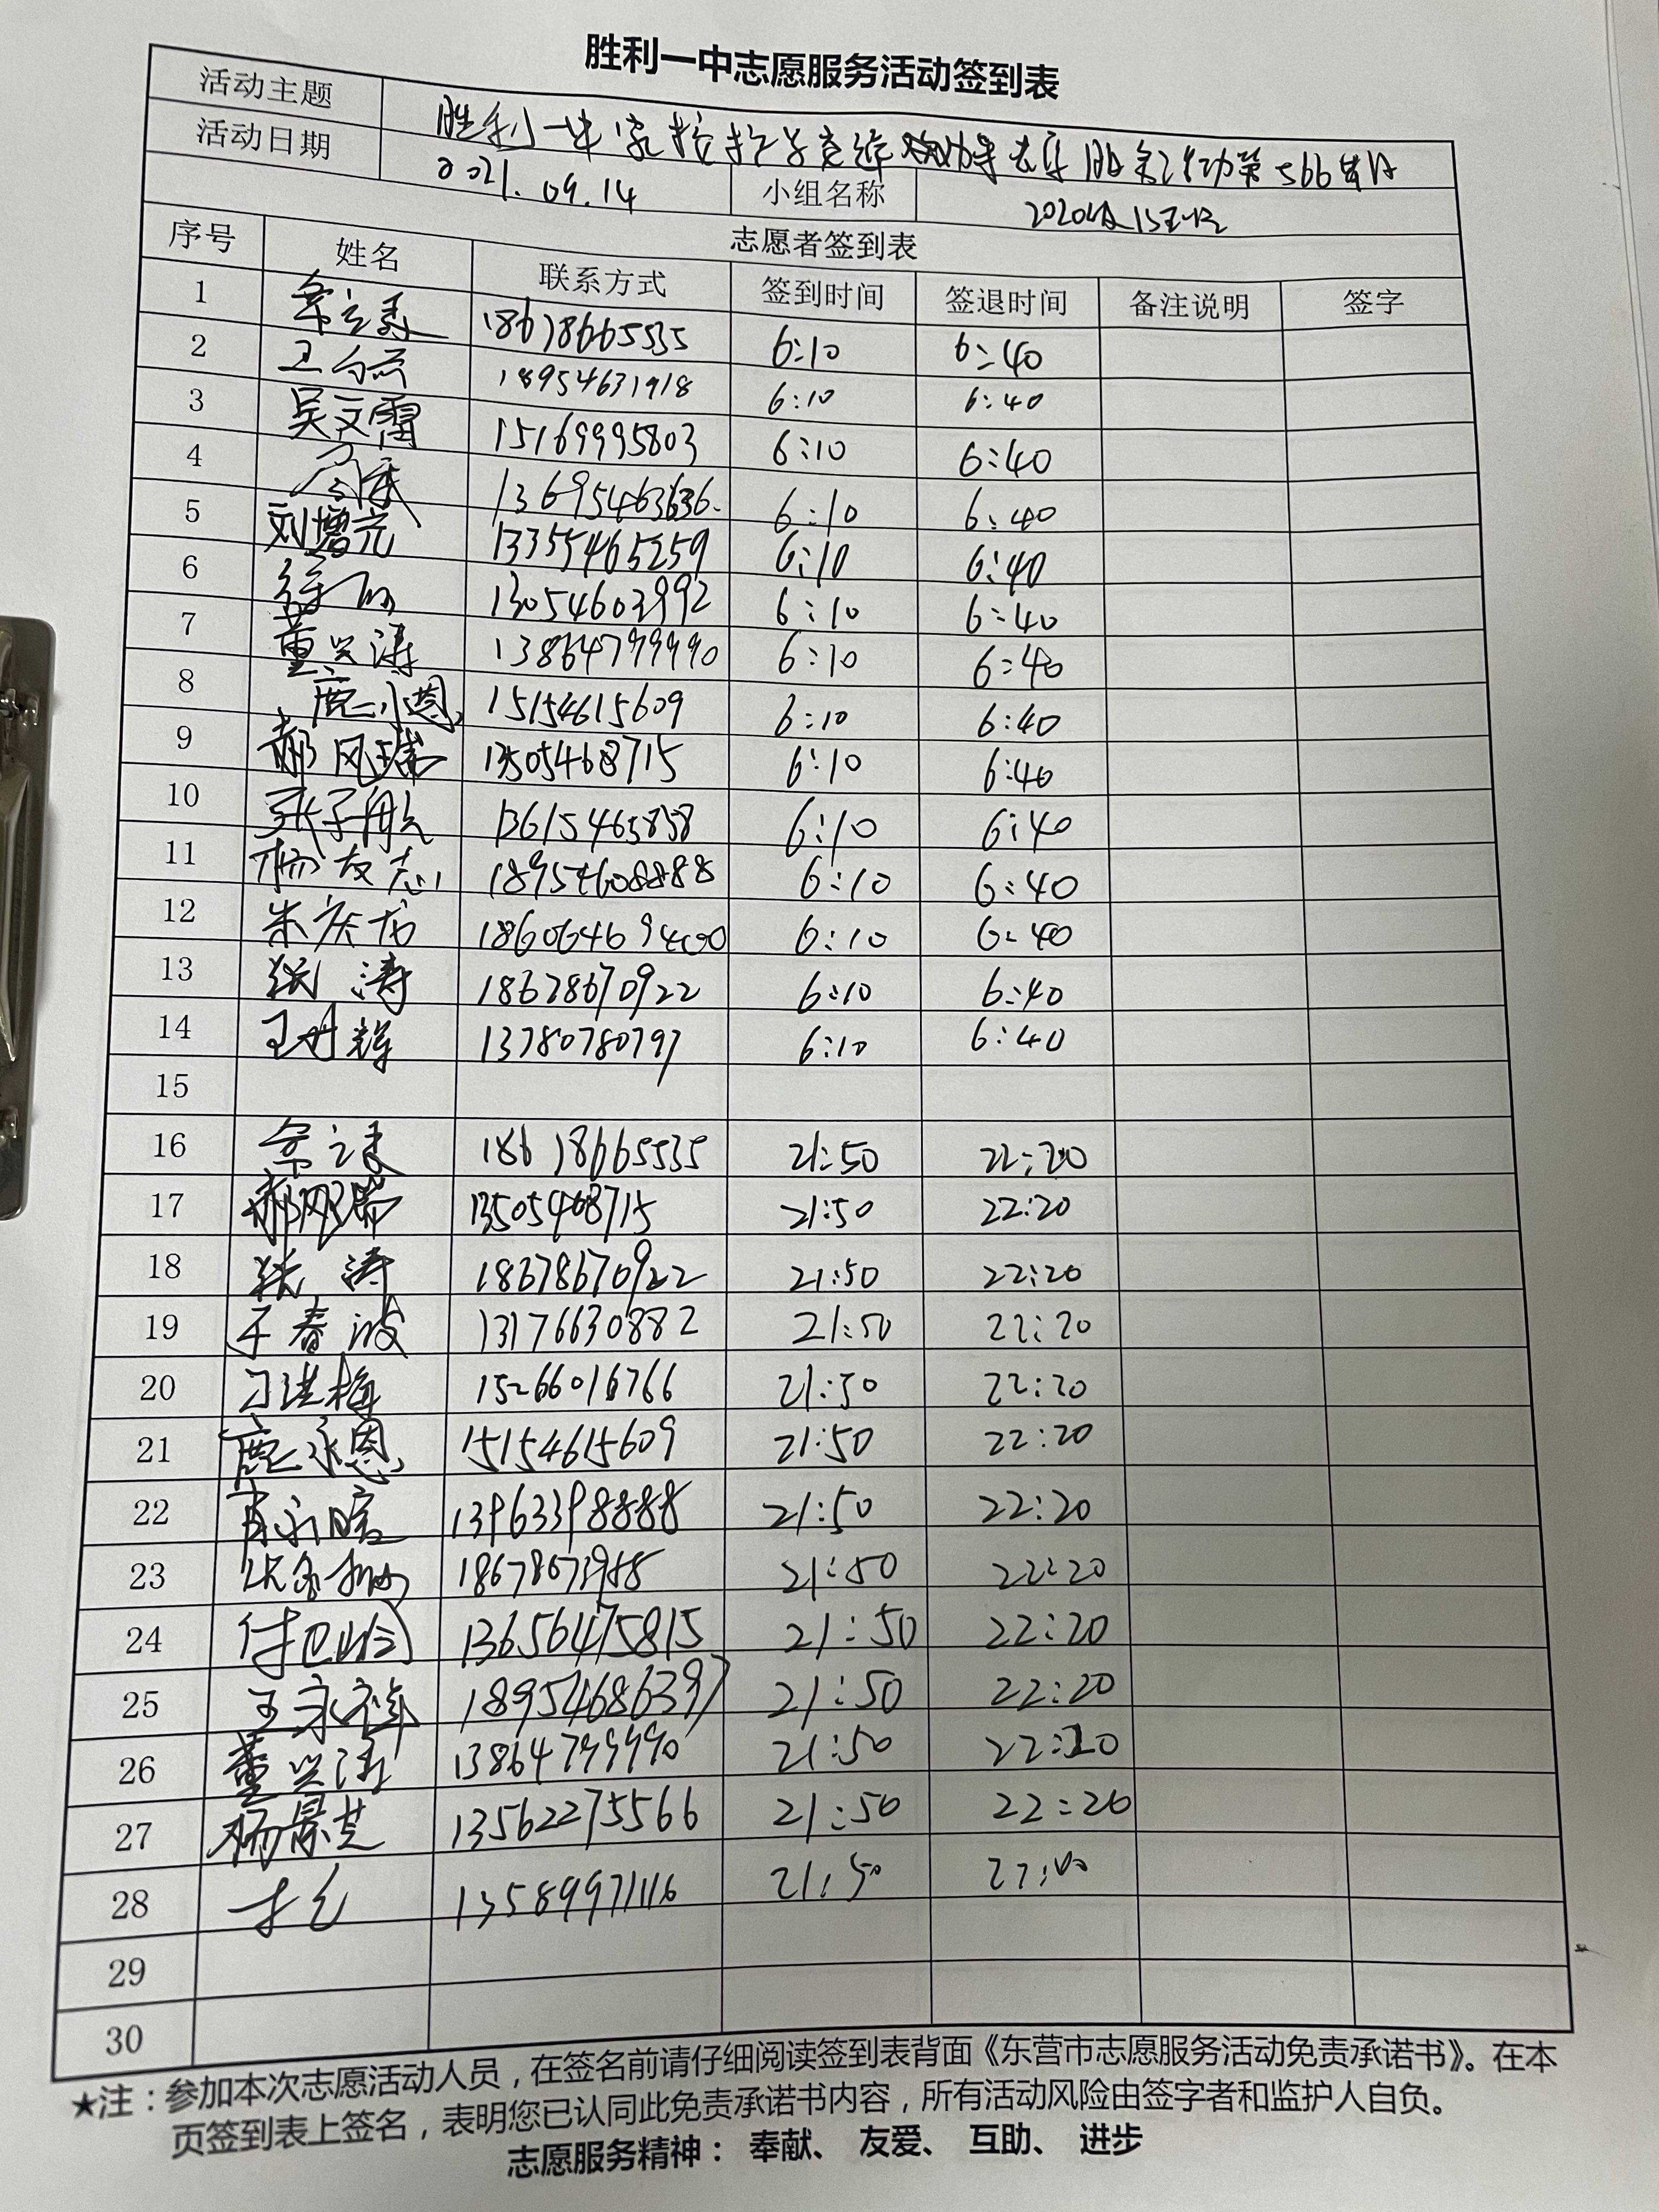 胜利一中志愿服务活动签到表
活动主题 胜利一中家校护学 志愿服务活动第566岗
活动日期 2021.09.14 小组名称 2020级15班
志愿者签到表
序号 姓名 联系方式 签到时间 签退时间 备注说明 签字
1 18678665535 6:10 6:40
2 18954631918 6:10 6:40
3 吴文雷 15169995803 6:10 6:40
4 13695463636 6:10 6:40
5 刘增亮 13355465259 6:10 6:40
6 13054603992 6:10 6:40
7 董兴涛 13864799990 6:10 6:40
8 鹿永恩 15154615609 6:10 6:40
9 郝风瑞 13505468715 6:10 6:40
10 张子航 13615465858 6:10 6:40
11 18954608888 6:10 6:40
12 朱庆龙 6:10 6:40
13 张涛 18678670922 6:10 6:40
14 13780780797 6:10 6:40
15
16 18678665535 21:50 22:20
17 郝风瑞 13505468715 21:50 22:20
18 张涛 18678670922 21:50 22:20
19 于春波 13176630882 21:50 22:20
20 刁洪梅 15266016766 21:50 22:20
21 鹿永恩 15154615609 21:50 22:20
22 13963398888 21:50 22:20
23 21:50 22:20
24 付卫岭 13656475815 21:50 22:20
25 王永祥 18954686397 21:50 22:20
26 董兴涛 13864799990 21:50 22:20
27 杨景芝 13562275566 21:50 22:20
28 13589971116 21:50
29
30
★注：参加本次志愿活动人员，在签名前请仔细阅读签到表背面《东营市志愿服务活动免责承诺书》。在本
页签到表上签名，表明您已认同此免责承诺书内容，所有活动风险由签字者和监护人自负。
志愿服务精神： 奉献、 友爱、 互助、 进步